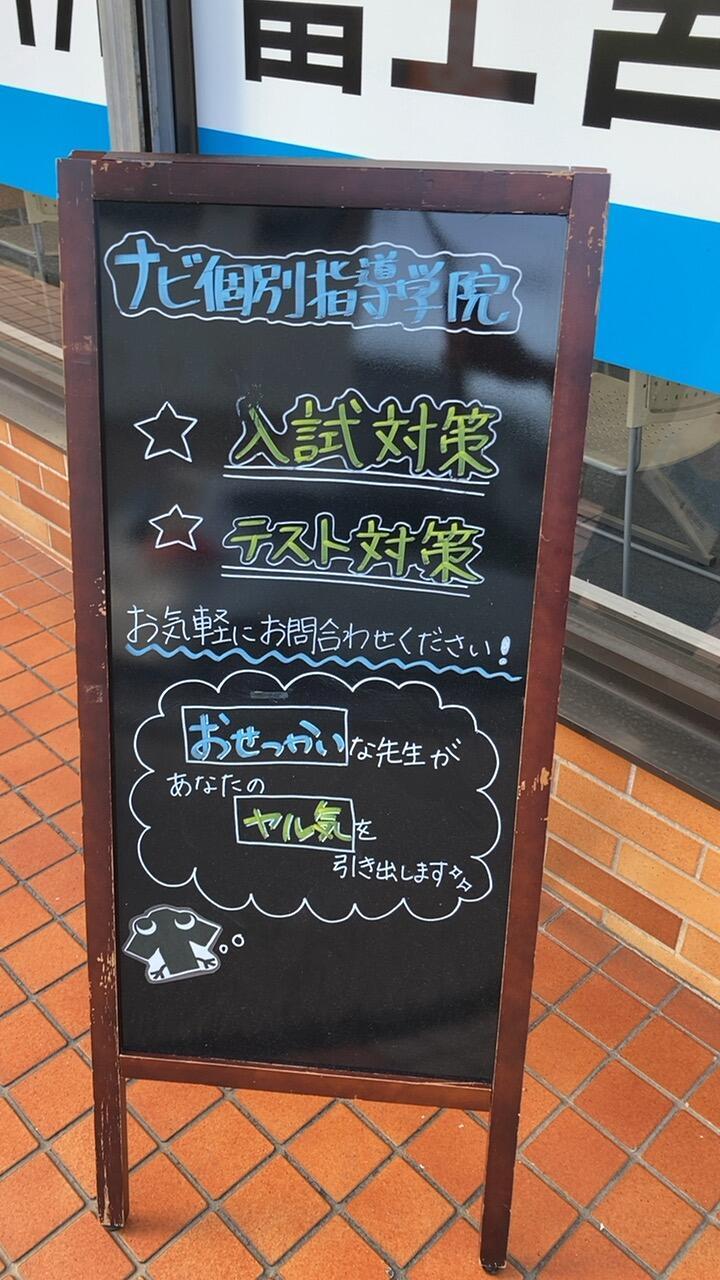 ナビ個別指導学院
入試対策
テスト対策
お気軽にお問合わせください!
おせっかいな先生が
あなたの
ヤル気を
引き出します